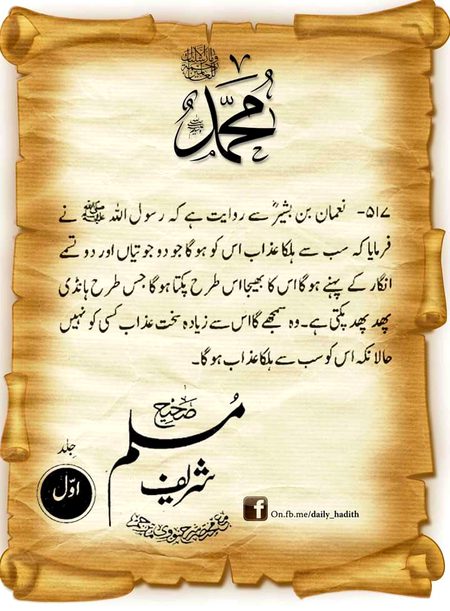 محمد
۵۱۷- نعمان بن بشیرؓ سے روایت ہے کہ رسول اللہ ﷺ نے
فرمایا کہ سب سے ہلکا عذاب اس کو ہوگا جو دو جوتیاں اور دو تسمے
انگار کے پہنے ہوگا اس کا بھیجا اس طرح پکتا ہوگا جس طرح ہانڈی
پھد پھد پکتی ہے۔ وہ سمجھے گا اس سے زیادہ سخت عذاب کسی کو نہیں
حالانکہ اس کو سب سے ہلکا عذاب ہوگا۔
صحیح
مسلم
شریف
جلد
اوّل
On.fb.me/daily_hadith